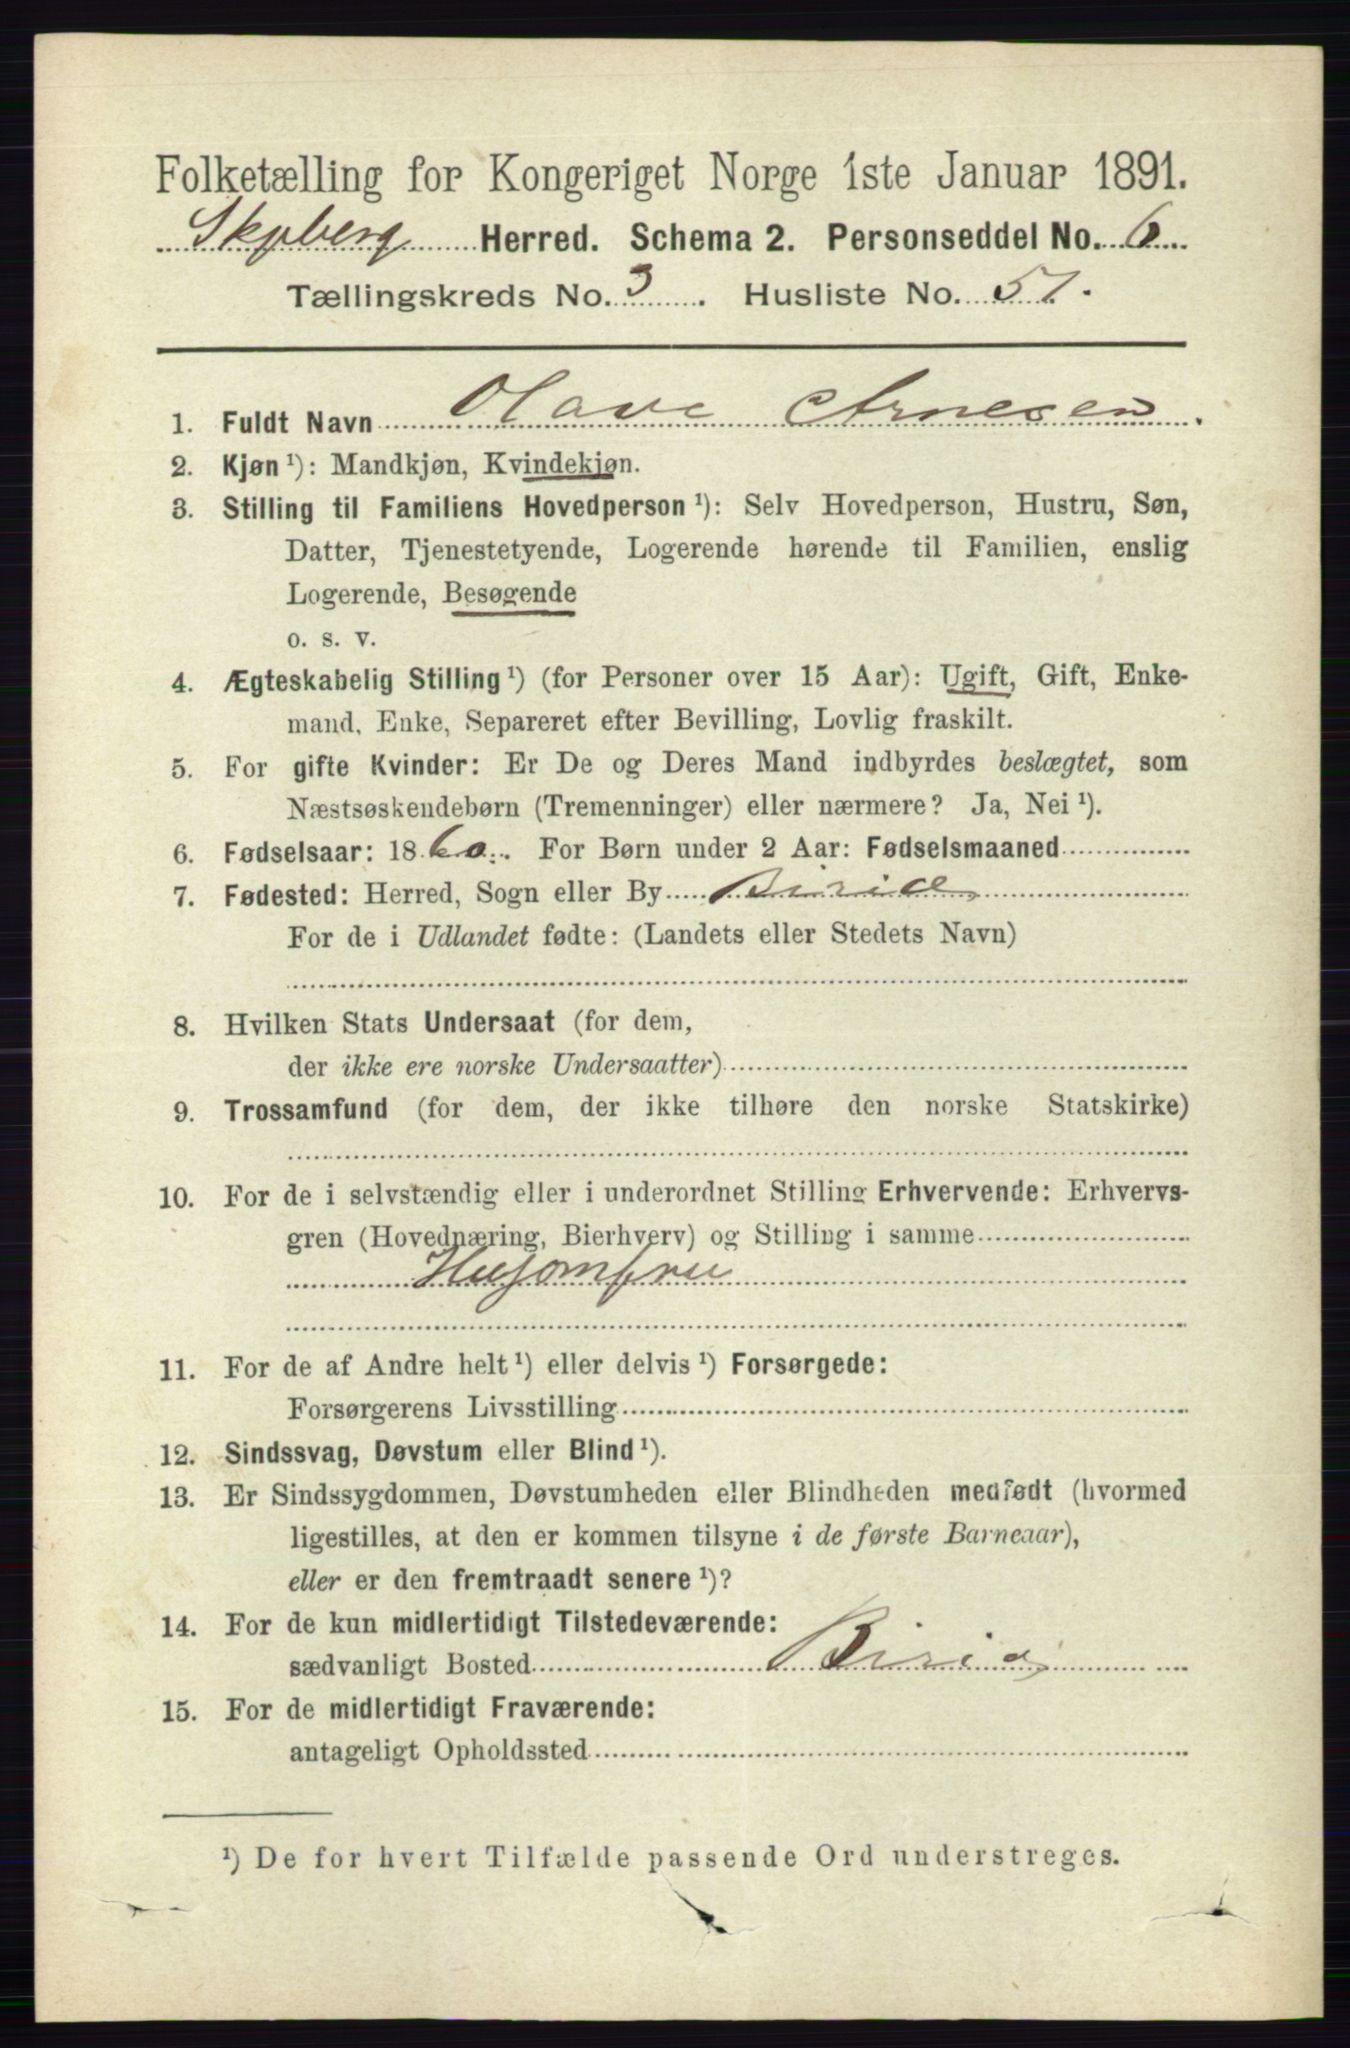 Folketælling for Kongeriget Norge 1ste Januar 1891.
Skjeberg Herred. Schema 2. Personseddel No. 6
Tællingskreds No. 3. Husliste No. 51.
1. Fuldt Navn Olave Arnesen.
2. Kjøn ¹): Mandkjøn, Kvindekjøn.
3. Stilling til Familiens Hovedperson ¹): Selv Hovedperson, Hustru, Søn,
Datter, Tjenestetyende, Logerende hørende til Familien, enslig
Logerende, Besøgende
o. s. v.
4. Ægteskabelig Stilling ¹) (for Personer over 15 Aar): Ugift, Gift, Enke-
mand, Enke, Separeret efter Bevilling, Lovlig fraskilt.
5. For gifte Kvinder: Er De og Deres Mand indbyrdes beslægtet, som
Næstsøskendebørn (Tremenninger) eller nærmere? Ja, Nei ¹).
6. Fødselsaar: 1860. For Børn under 2 Aar: Fødselsmaaned
7. Fødested: Herred, Sogn eller By
For de i Udlandet fødte: (Landets eller Stedets Navn)
8. Hvilken Stats Undersaat (for dem,
der ikke ere norske Undersaatter)
9. Trossamfund (for dem, der ikke tilhøre den norske Statskirke)
10. For de i selvstændig eller i underordnet Stilling Erhvervende: Erhvervs-
gren (Hovednæring, Bierhverv) og Stilling i samme
Husjomfru
11. For de af Andre helt ¹) eller delvis ¹) Forsørgede:
Forsørgerens Livsstilling
12. Sindssvag, Døvstum eller Blind ¹).
13. Er Sindssygdommen, Døvstumheden eller Blindheden medfødt (hvormed
ligestilles, at den er kommen tilsyne i de første Barneaar),
eller er den fremtraadt senere ¹)?
14. For de kun midlertidigt Tilstedeværende:
sædvanligt Bosted
15. For de midlertidigt Fraværende:
antageligt Opholdssted
¹) De for hvert Tilfælde passende Ord understreges.